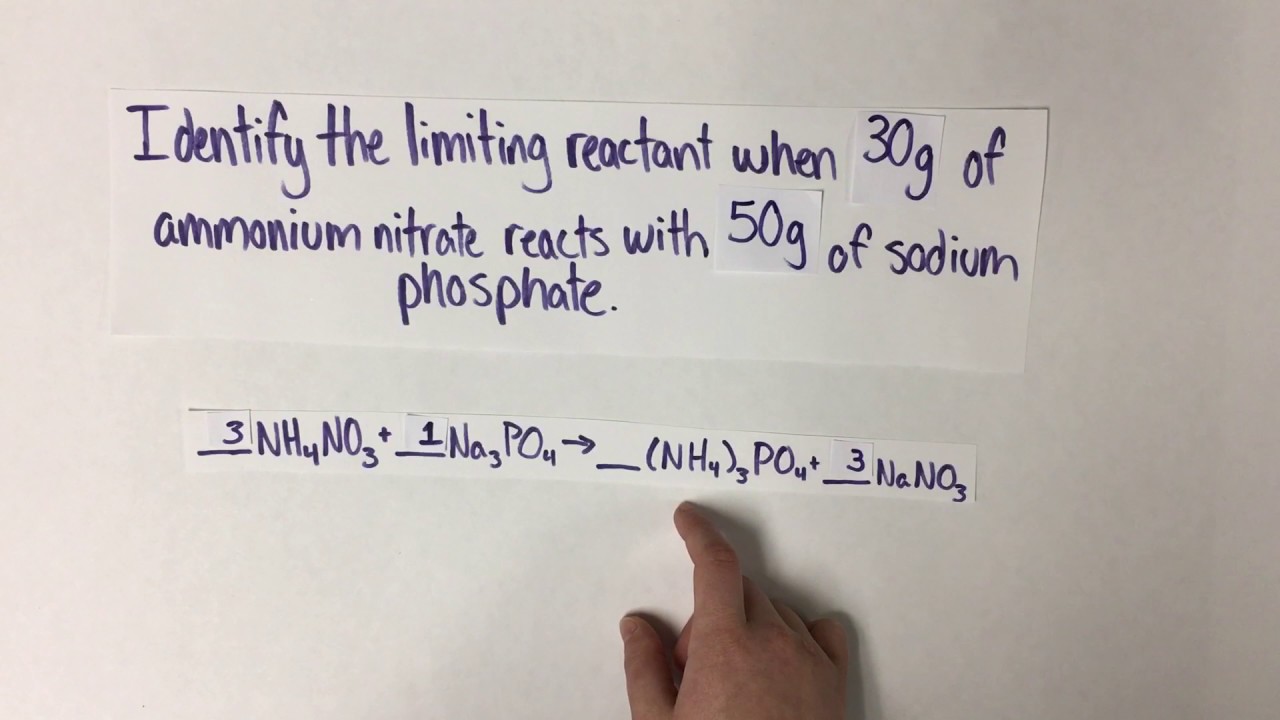 Identify the limiting reactant when 30g of
ammonium nitrate reacts with 50g of sodium
phosphate.
3 NH₄NO₃ + 1 Na₃PO₄ → __ (NH₄)₃PO₄ + 3 NaNO₃